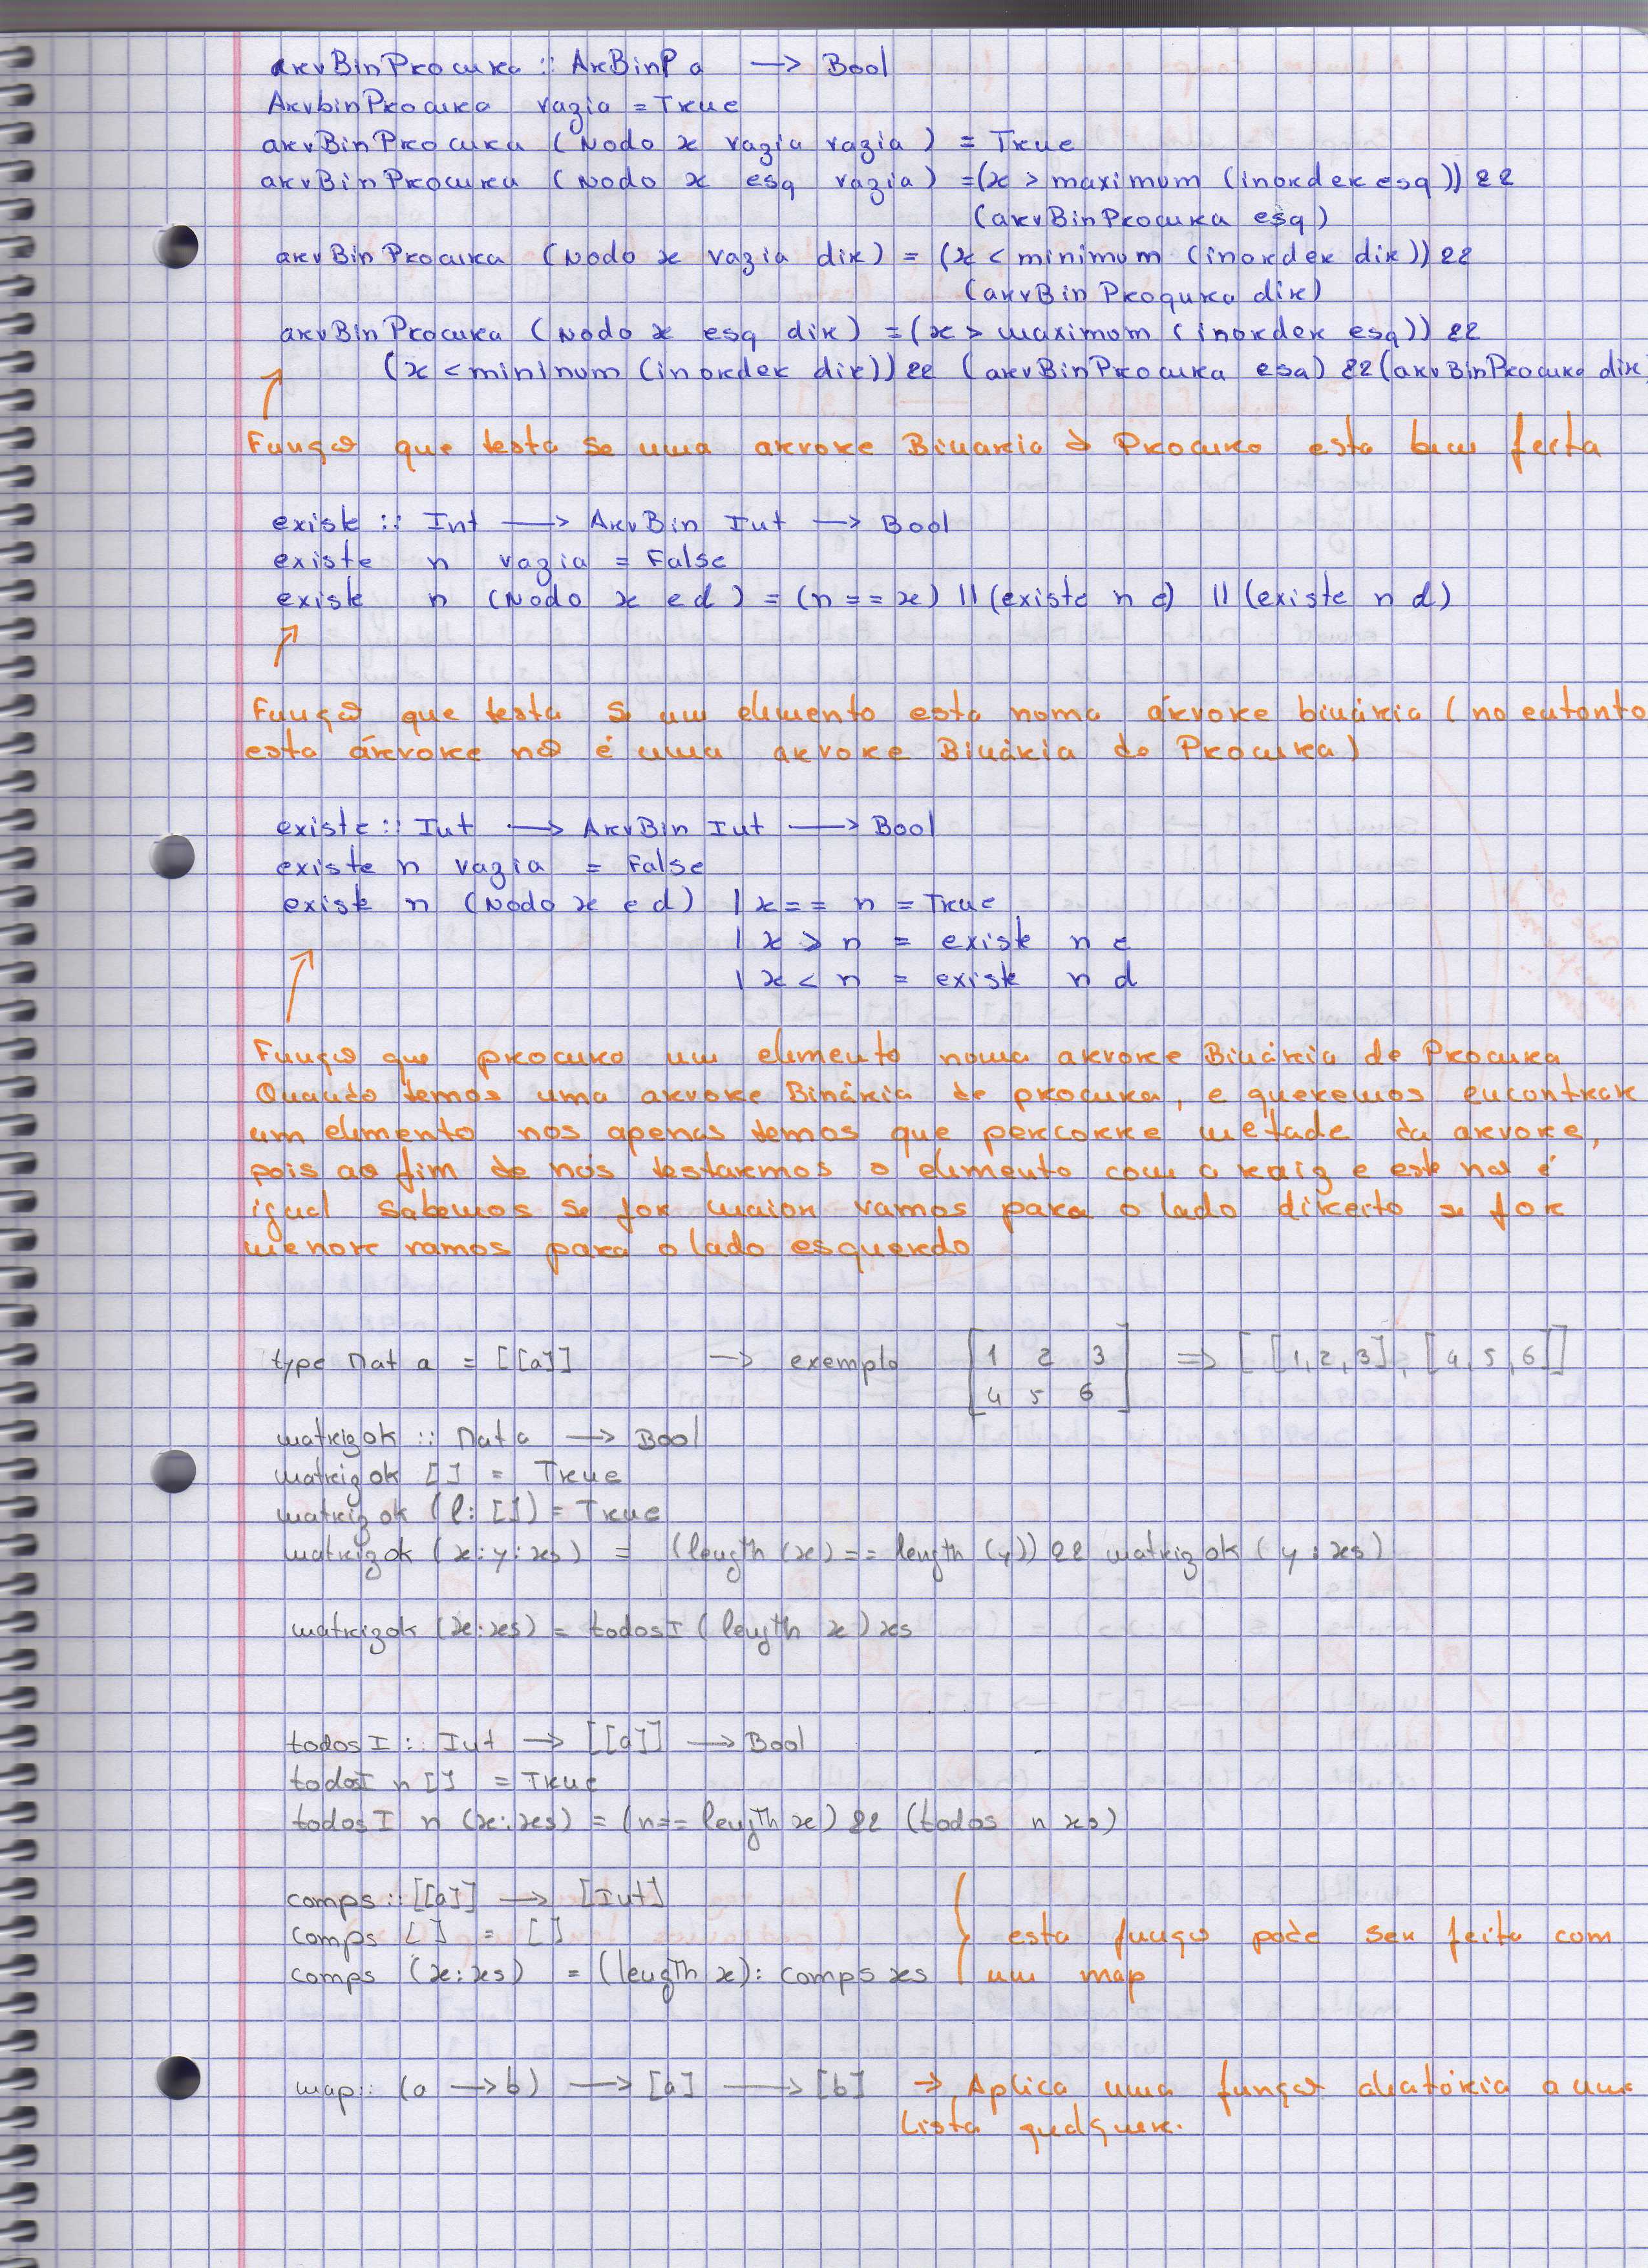 arvBinProcura :: ArBinP a -> Bool
ArvbinProcura vazia = True
arvBinProcura (Nodo x vazia vazia) = True
arvBinProcura (Nodo x esq vazia) = (x > maximum (inorder esq)) &&
(arvBinProcura esq)
arvBinProcura (Nodo x vazia dir) = (x < minimum (inorder dir)) &&
(arvBinProqura dir)
arvBinProcura (Nodo x esq dir) = (x > maximum (inorder esq)) &&
(x < mininum (inorder dir)) && (arvBinProcura esq) && (arvBinProcura dir
Função que testa se uma arvore Binaria d Procura esta bem feita
existe :: Int -> ArvBin Int -> Bool
existe n vazia = False
existe n (Nodo x e d) = (n == x) || (existe n e) || (existe n d)
Função que testa se um elemento esta numa árvore binária (no entanto
esta árvore não é uma arvore Binária de Procura)
existe :: Int -> ArvBin Int -> Bool
existe n vazia = False
existe n (Nodo x e d) | x == n = True
| x > n = existe n e
| x < n = existe n d
Função que procura um elemento numa arvore Binária de Procura
Quando temos uma arvore Binária de procura, e queremos encontrar
um elemento nos apenas temos que percorre metade da arvore,
pois ao fim de nós testarmos o elemento com a raiz e este não é
igual sabemos se for maior vamos para o lado direito se for
menor vamos para o lado esquerdo
type Mat a = [[a]] -> exemplo [1 2 3 => [[1,2,3],[4,5,6]]
4 5 6]
matrizok :: Mat a -> Bool
matrizok [] = True
matrizok (l:[]) = True
matrizok (x:y:xs) = (length (x) == length (y)) && matrizok (y:xs)
matrizok (x:xs) = todosI (length x) xs
todosI :: Int -> [[a]] -> Bool
todosI n [] = True
todosI n (x:xs) = (n == length x) && (todos n xs)
comps :: [[a]] -> [Int]
comps [] = []
comps (x:xs) = (length x) : comps xs
esta função pode ser feita com
um map
map :: (a -> b) -> [a] -> [b] -> Aplica uma função aleatória a uma
Lista qualquer.